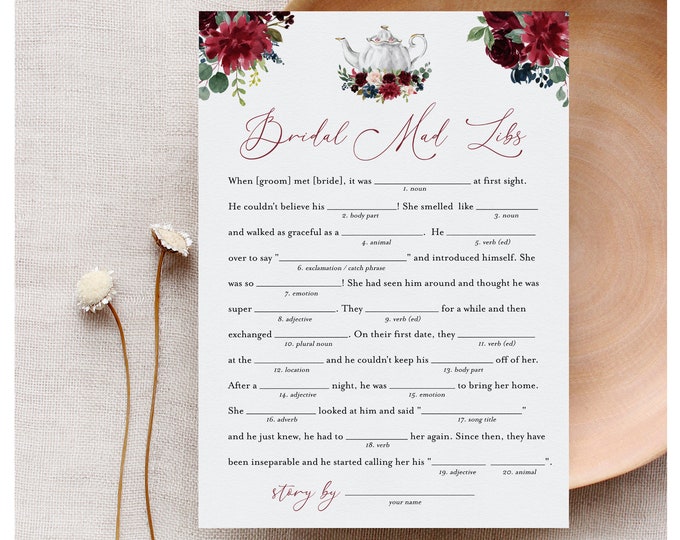 Bridal Mad Libs
When [groom] met [bride], it was ____________ at first sight.
1. noun
He couldn't believe his ____________! She smelled like ____________
2. body part 3. noun
and walked as graceful as a ____________. He ____________
4. animal 5. verb (ed)
over to say "____________" and introduced himself. She
6. exclamation / catch phrase
was so ____________! She had seen him around and thought he was
7. emotion
super ____________. They ____________ for a while and then
8. adjective 9. verb (ed)
exchanged ____________. On their first date, they ____________
10. plural noun 11. verb (ed)
at the ____________ and he couldn't keep his ____________ off of her.
12. location 13. body part
After a ____________ night, he was ____________ to bring her home.
14. adjective 15. emotion
She ____________ looked at him and said "____________"
16. adverb 17. song title
and he just knew, he had to ____________ her again. Since then, they have
18. verb
been inseparable and he started calling her his "____________ ____________".
19. adjective 20. animal
story by ____________
your name